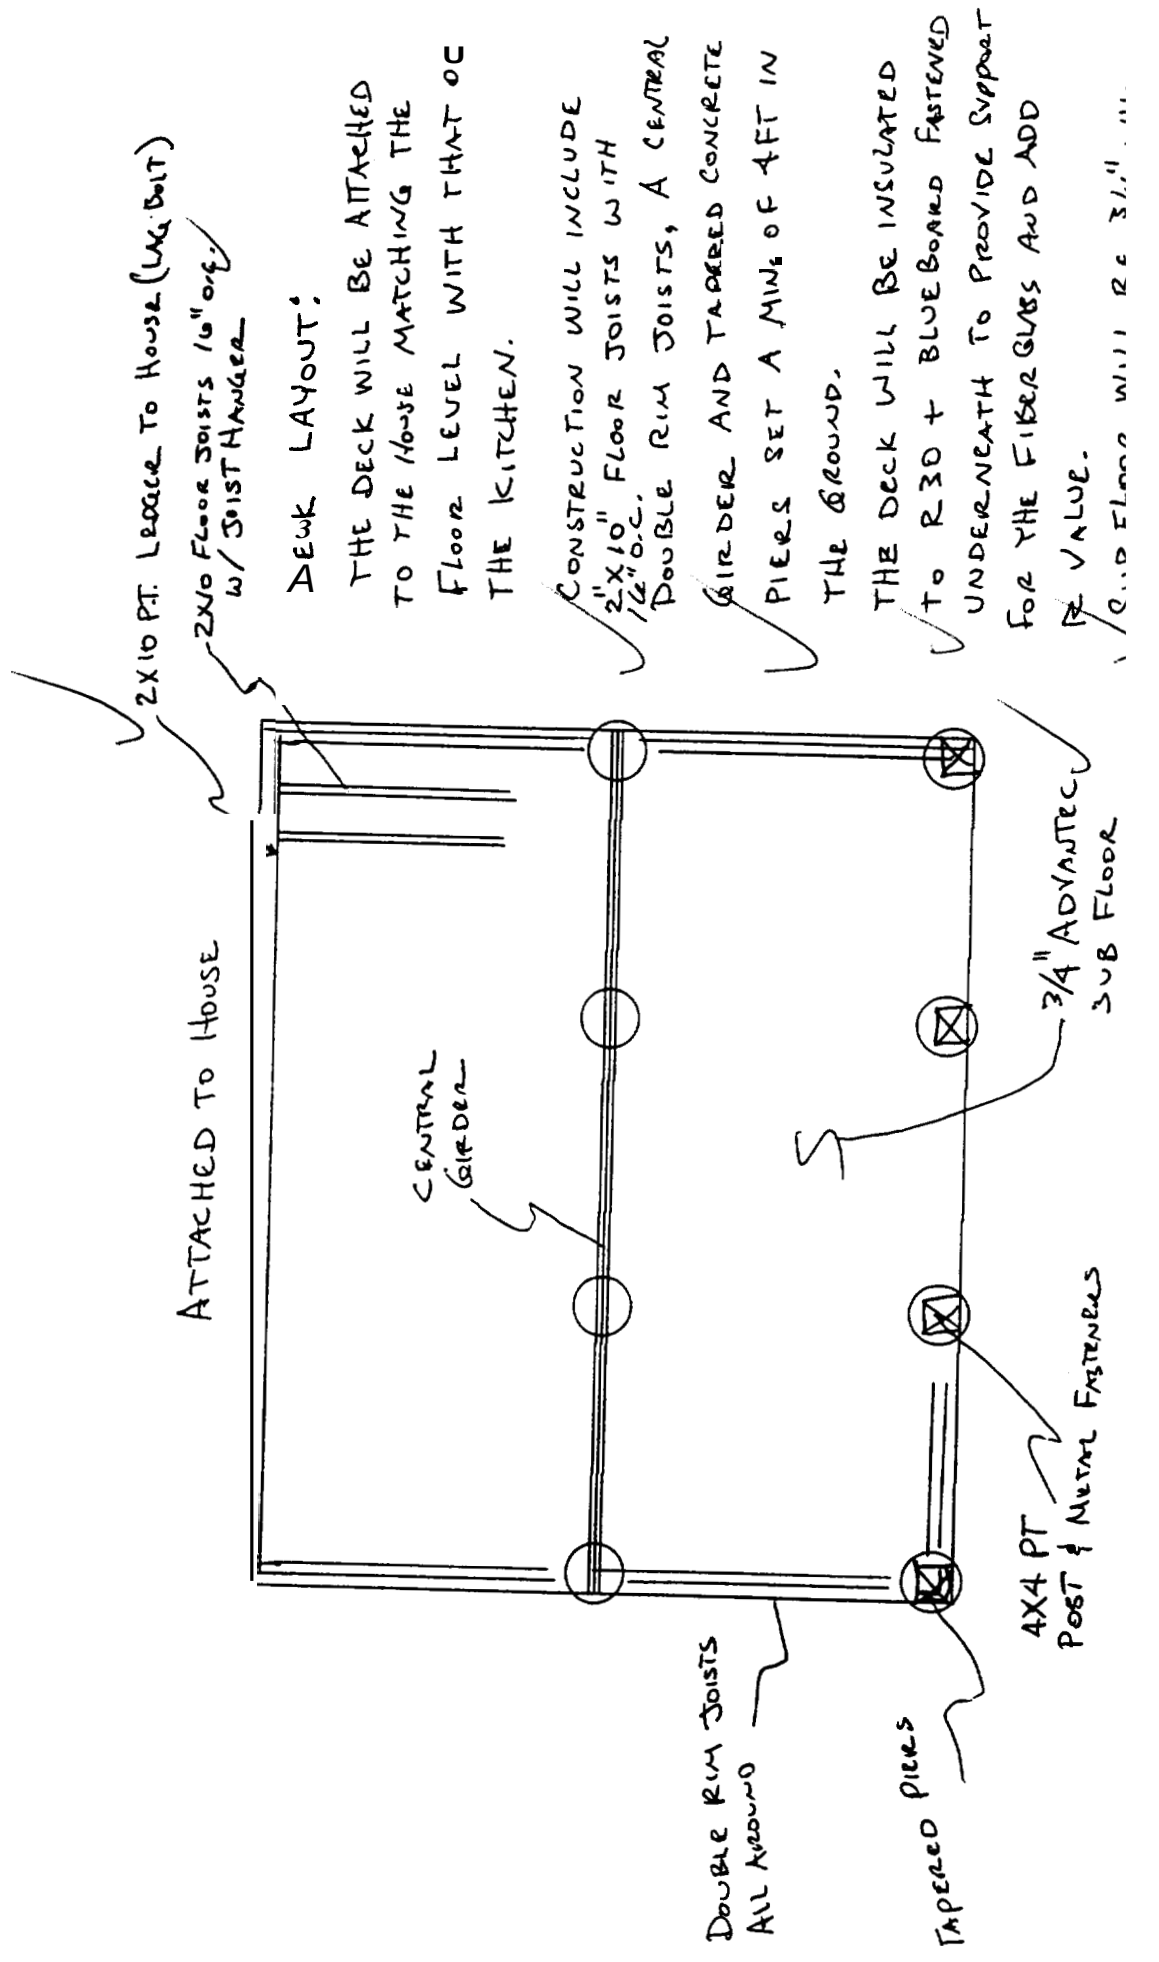 ATTACHED TO HOUSE
2X10 P.T. LEDGER TO HOUSE (LAG BOLT)
2X10 FLOOR JOISTS 16" O.C.
W/ JOIST HANGER
CENTRAL
GIRDER
DOUBLE RIM JOISTS
ALL AROUND
TAPERED PIERS
4X4 PT
POST & METAL FASTENERS
3/4" ADVANTEC
SUB FLOOR
DECK LAYOUT:
THE DECK WILL BE ATTACHED
TO THE HOUSE MATCHING THE
FLOOR LEVEL WITH THAT OF
THE KITCHEN.
CONSTRUCTION WILL INCLUDE
2"X10" FLOOR JOISTS WITH
16" O.C.
DOUBLE RIM JOISTS, A CENTRAL
GIRDER AND TAPERED CONCRETE
PIERS SET A MIN. OF 4FT IN
THE GROUND.
THE DECK WILL BE INSULATED
TO R30 + BLUEBOARD FASTENED
UNDERNEATH TO PROVIDE SUPPORT
FOR THE FIBERGLASS AND ADD
R VALUE.
SUBFLOOR WILL BE 3/4"